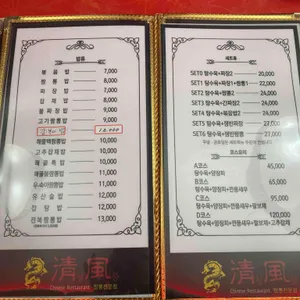 밥류
볶음밥 7,000
짬뽕밥 8,000
짜장밥 7,000
잡채밥 8,000
불짜장밥 9,000
고기짬뽕밥 9,000
12,000
해물덮밥 10,000
고추잡채밥 10,000
해물볶음밥 10,000
유산슬밥 12,000
잡탕밥 12,000
전복짬뽕밥 13,000
清風
Chinese Restaurant 청풍반점
세트류
SET0 탕수육+짜장2 20,000
SET1 탕수육+짜짬 22,000
SET2 탕수육+짬뽕2 24,000
SET3 탕수육+간짜장2 24,000
SET4 탕수육+볶음밥2 24,000
SET5 탕수육+쟁반짜장
SET6 탕수육+쟁반짬뽕
코스요리
A코스 45,000
탕수육+양장피
B코스 65,000
탕수육+양장피+깐풍새우
C코스 95,000
탕수육+양장피+깐풍새우+팔보채
D코스 120,000
탕수육+양장피+깐풍새우+팔보채+고추잡채
清風
Chinese Restaurant 청풍반점